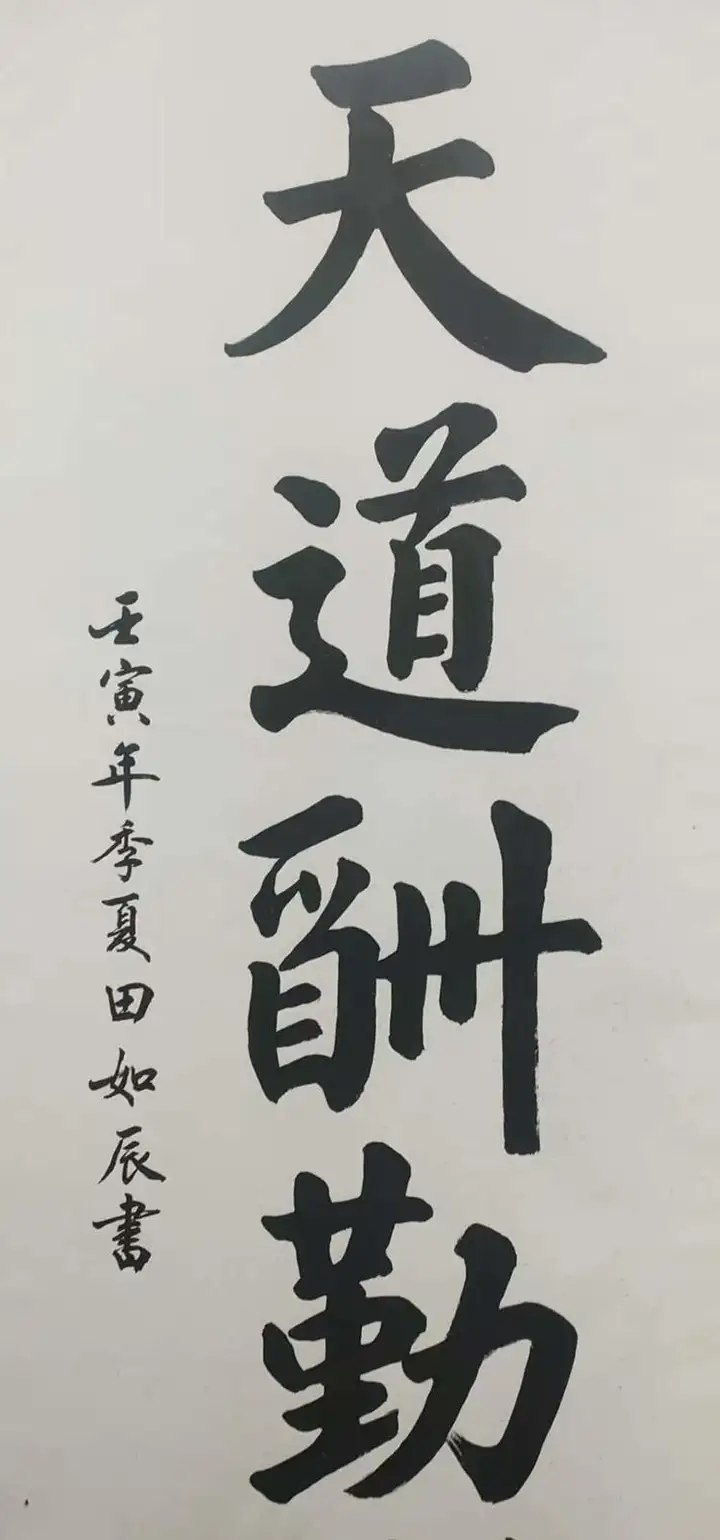 天道酬勤
壬寅年季夏田如辰書